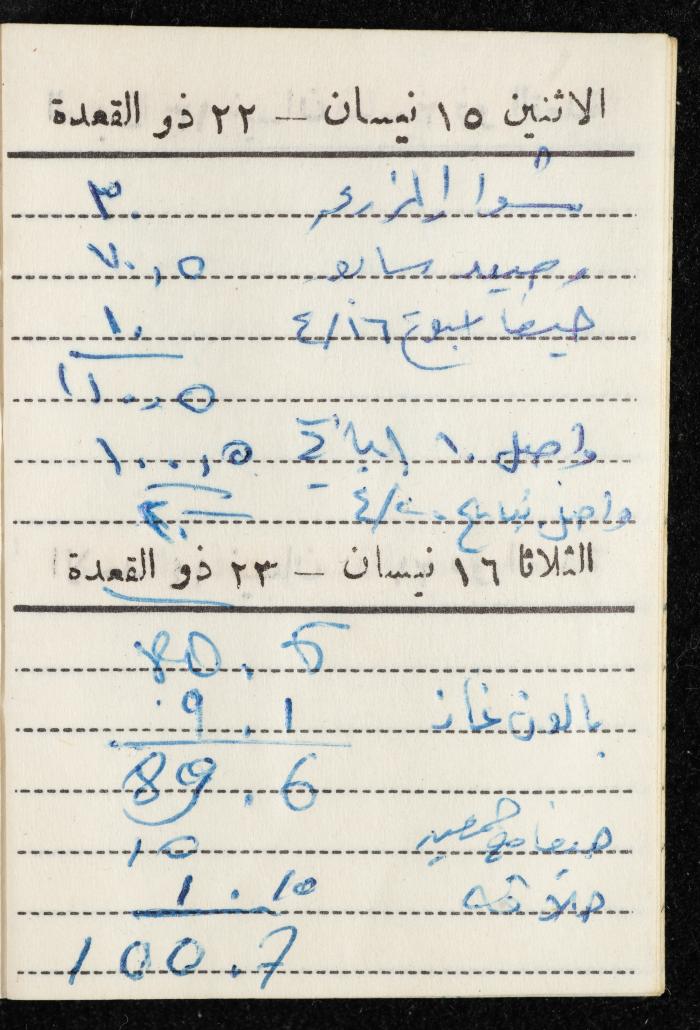 الاثنين ١٥ نيسان – ٢٢ ذو القعدة
٣٠
رصيد سابق ٧٠,٥
حيفا اسبوع ٤/١٦ ١٠
١١٠,٥
واصل ١٠ ١٠٠,٥
واصل ٤/٢٠ ٢٠
الثلاثا ١٦ نيسان – ٢٣ ذو القعدة
80.5
بالون غاز 9.1
89.6
10
حلاقه 1.10
100.7